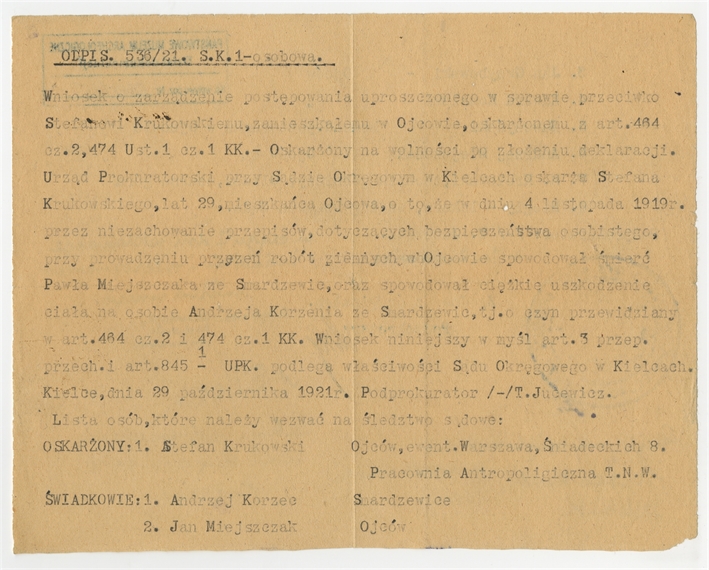 ODPIS. 536/21. S.K.1-osobowa.
Wniosek o zarządzenie postępowania uproszczonego w sprawie przeciwko
Stefanowi Krukowskiemu,zamieszkałemu w Ojcowie,oskarżonemu z art.464
cz.2,474 Ust.1 cz.1 KK.- Oskarżony na wolności po złożeniu deklaracji.
Urząd Prokuratorski przy Sądzie Okręgowym w Kielcach oskarża Stefana
Krukowskiego,lat 29,mieszkańca Ojcowa,o to,że w dniu 4 listopada 1919r.
przez niezachowanie przepisów,dotyczących bezpieczeństwa osobistego,
przy prowadzeniu przezeń robót ziemnych w Ojcowie spowodował śmierć
Pawła Miejszczaka ze Smardzewic,oraz spowodował ciężkie uszkodzenie
ciała na osobie Andrzeja Korzenia ze Smardzewic,tj.o czyn przewidziany
w art.464 cz.2 i 474 cz.1 KK. Wniosek niniejszy w myśl art.3 przep.
przech.i art.845 1/- UPK. podlega właściwości Sądu Okręgowego w Kielcach.
Kielce,dnia 29 października 1921r. Podprokurator /-/T.Jucewicz.
Lista osób,które należy wezwać na śledztwo sądowe:
OSKARŻONY:1. Stefan Krukowski Ojców,event.Warszawa,Śniadeckich 8.
Pracownia Antropoligiczna T.N.W.
ŚWIADKOWIE:1. Andrzej Korzec Smardzewice
2. Jan Miejszczak Ojców